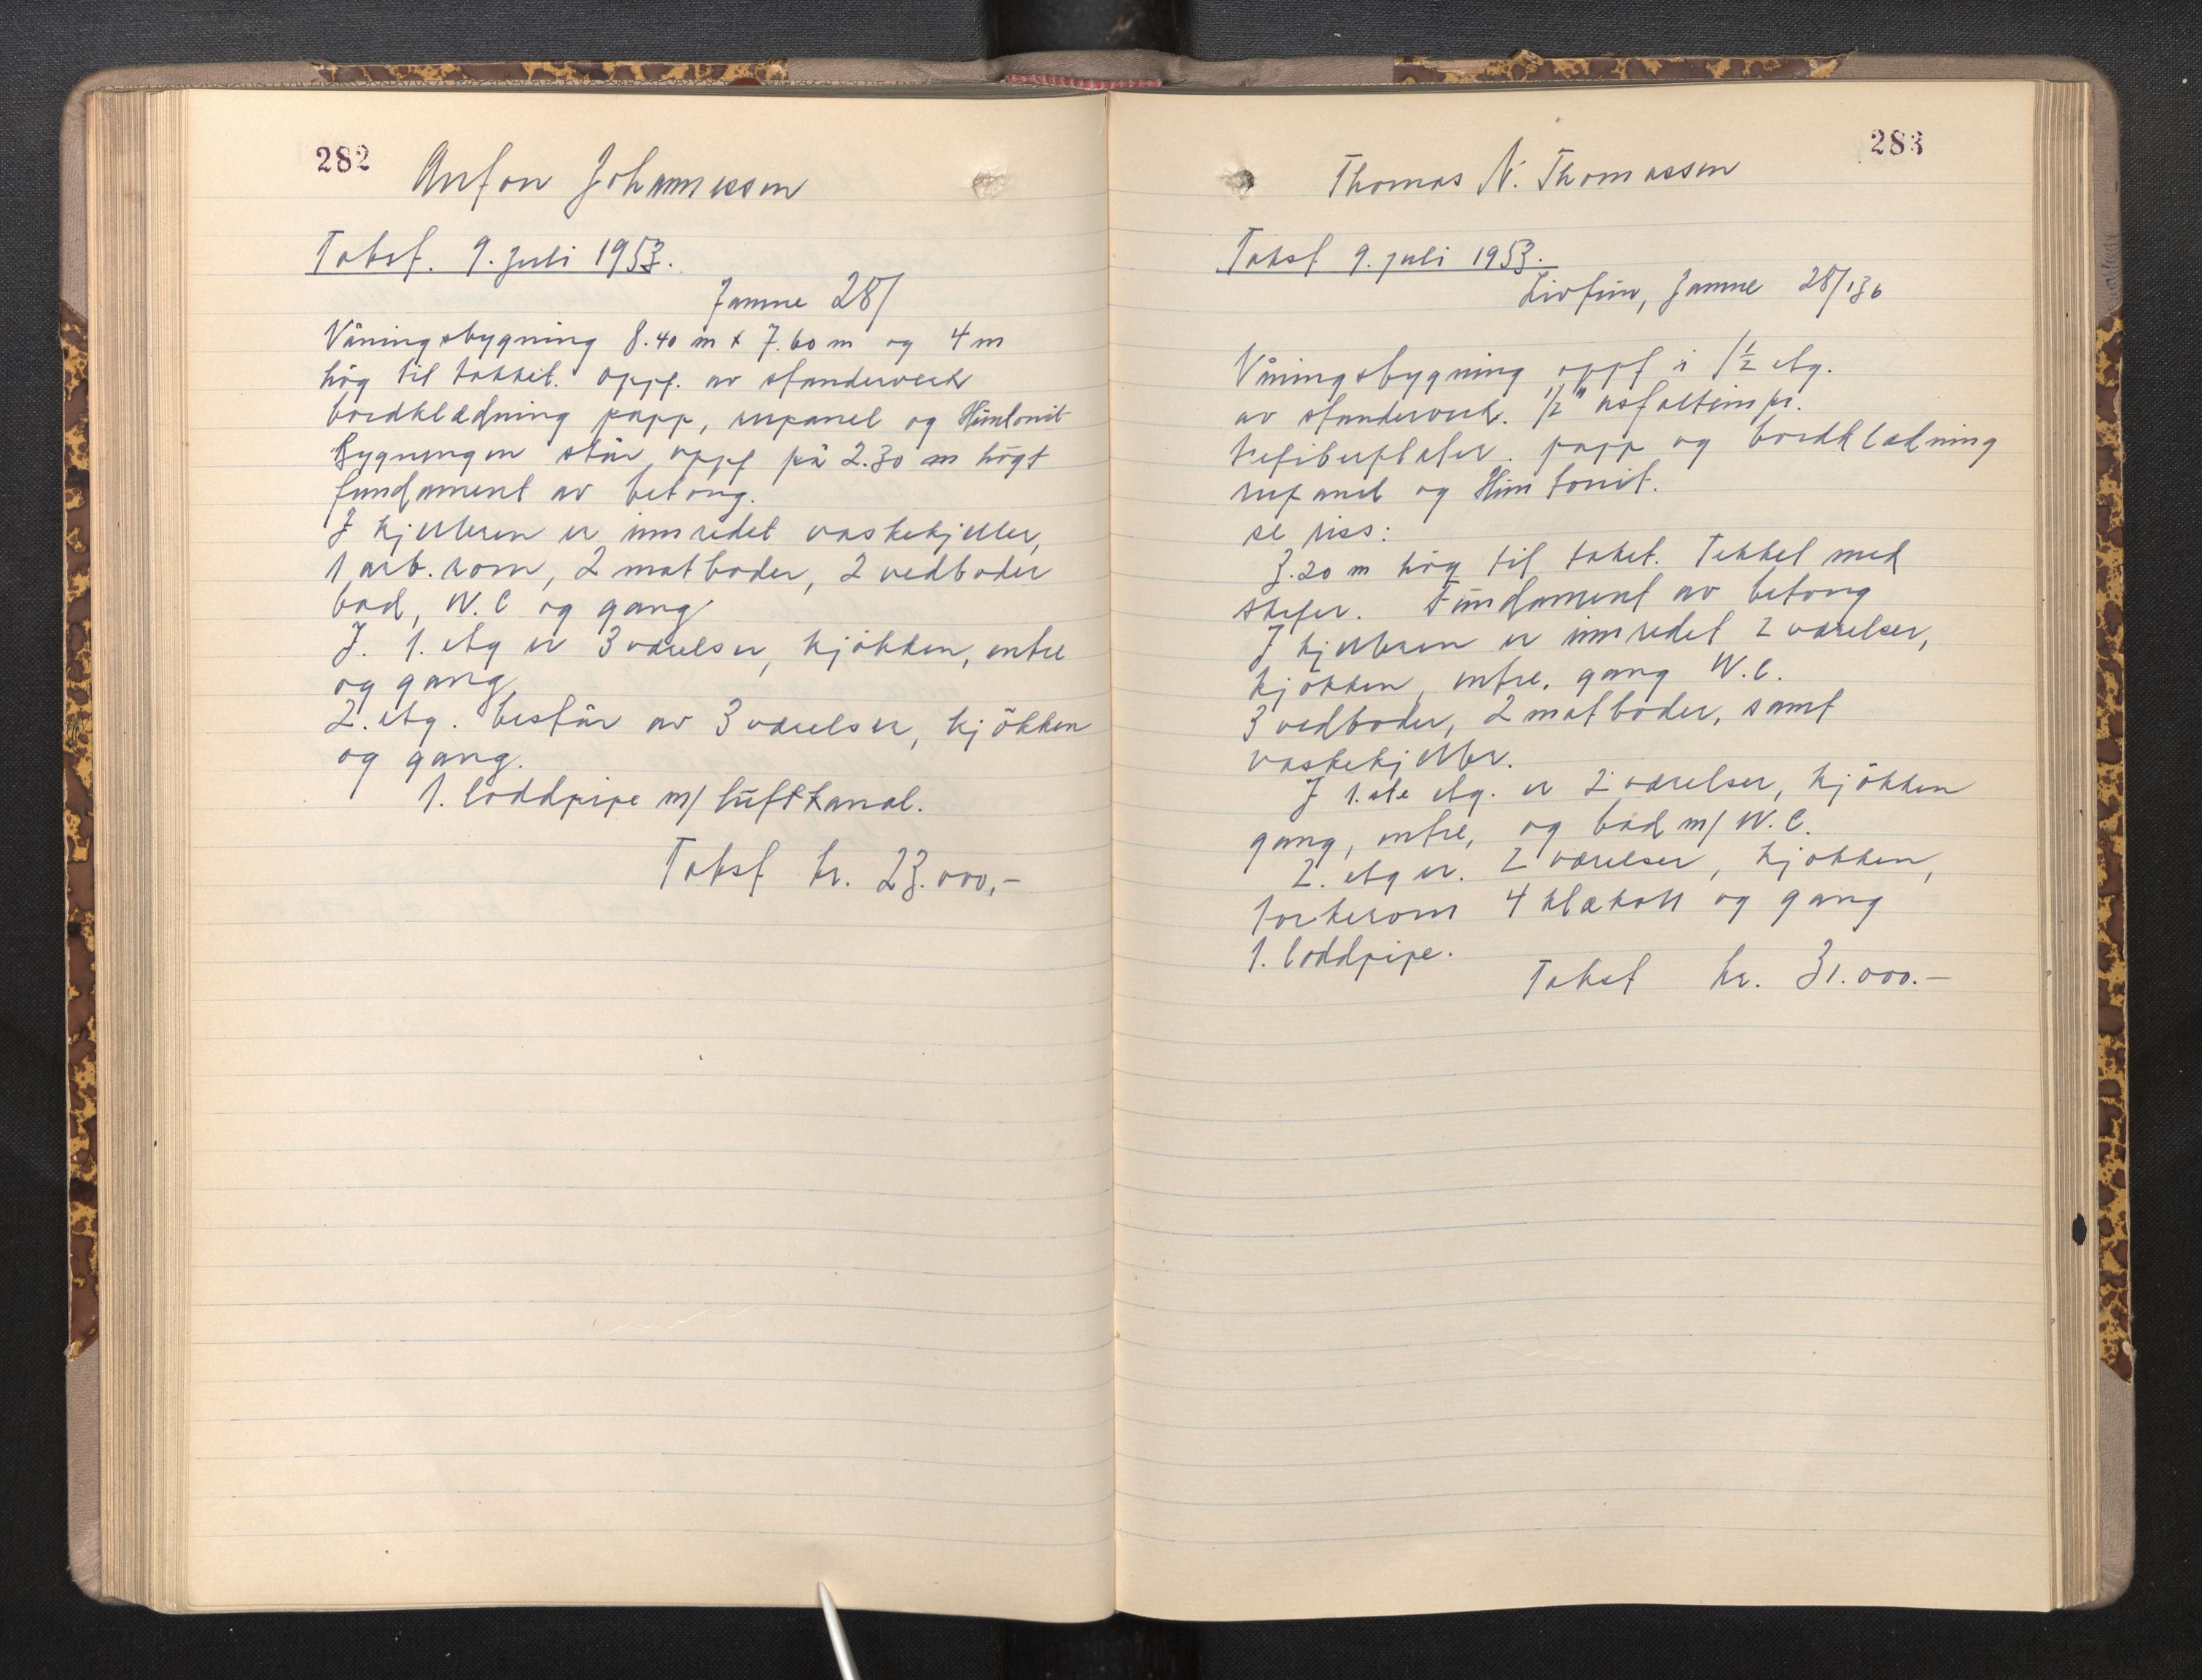 282
Anton Johannessen
Takst. 9. Juli 1953.
Jamne 28/
Våningsbygning 8.40 m x 7.60 m og 4 m
høg til takket. oppf. av standerverk
bordklædning papp, rupanel og Huntonit
Bygningen står oppf på 2.30 m högt
fundament av betong.
I kjelleren er innredet vaskekjeller,
1 arb. rom, 2 matboder, 2 vedboder
bad, W.C og gang
I. 1. etg er 3 værelser, kjökken, entre
og gang,
2. etg. består av 3 værelser, kjökken
og gang.
1. loddpipe m/ luftkanal.
Takst kr. 23.000,-
283
Thomas N. Thomassen
Takst 9. juli 1953.
Livtun, Jamne 28/136
Våningsbygning oppf i 1 1/2 etg.
av standerverk. 1/2" asfaltimpr.
trefiberplater. papp og bordklædning
rupanel og Huntonit.
se riss:
3.20 m høg til taket. Tekket med
skifer. Fundament av betong
I kjelleren er innredet 2 værelser,
kjökken, entre, gang W.C.
3 vedboder, 2 matboder, samt
vaskekjeller.
I 1.ste etg. er 2 værelser, kjökken
gang, entre, og bad m/ W.C.
2. etg er. 2 værelser, kjökken,
torkerom 4 klækott og gang
1. loddpipe.
Takst kr. 31.000.-